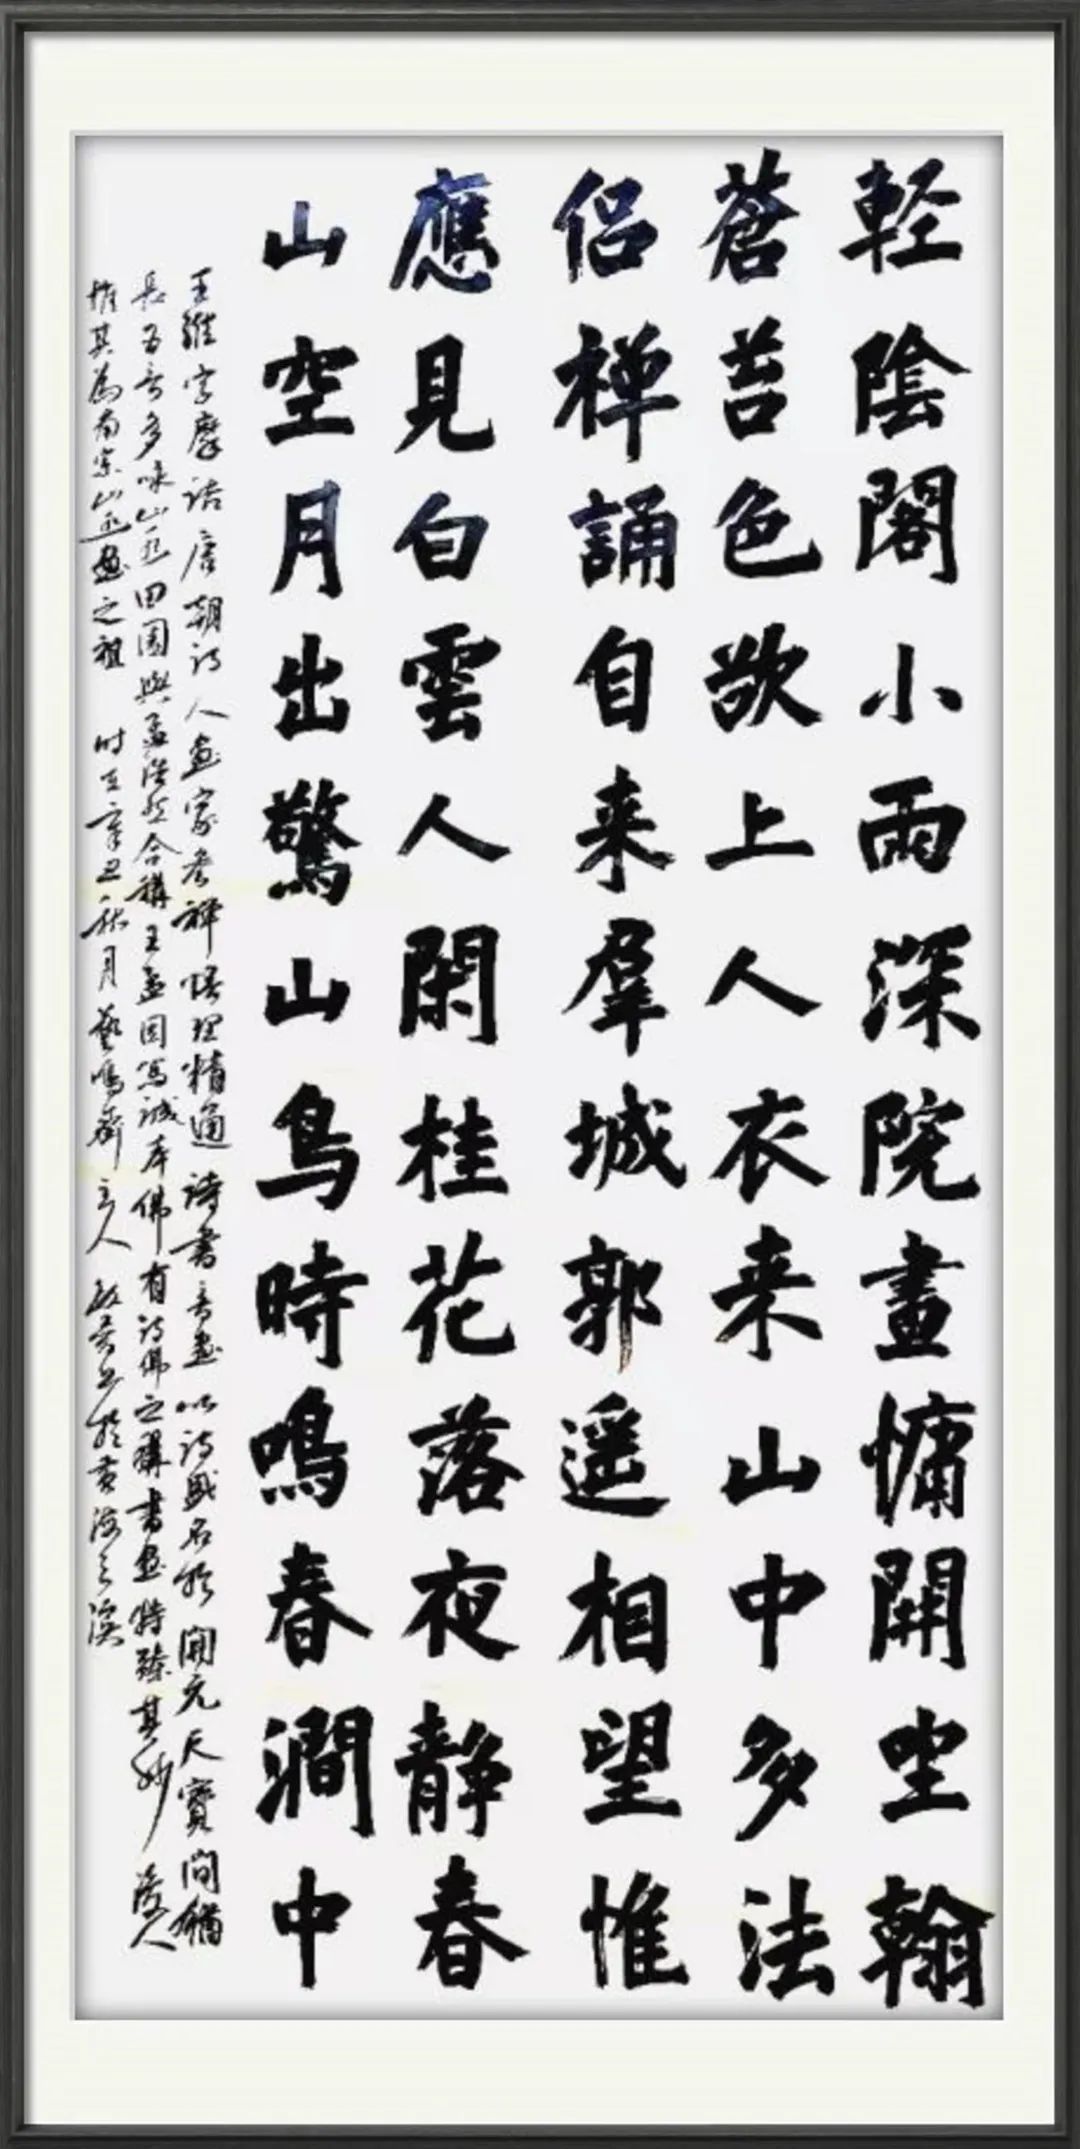 軽陰閣小雨深院畫慵開坐翰
蒼苔色欲上人衣来山中多法
侶禅誦自来羣城郭遥相望惟
應見白雲人閑桂花落夜静春
山空月出驚山鳥時鳴春澗中
王維字摩詰唐朝诗人畫家参禅悟理精通詩書音畫以诗盛名於開元天寶間猶
長五言多咏山水田園與孟浩然合稱王孟因篤誠奉佛有诗佛之稱書畫特臻其妙後人
推其為南宗山水畫之祖 时在辛丑秋月藝鳴齋主人 书於黄海之濱